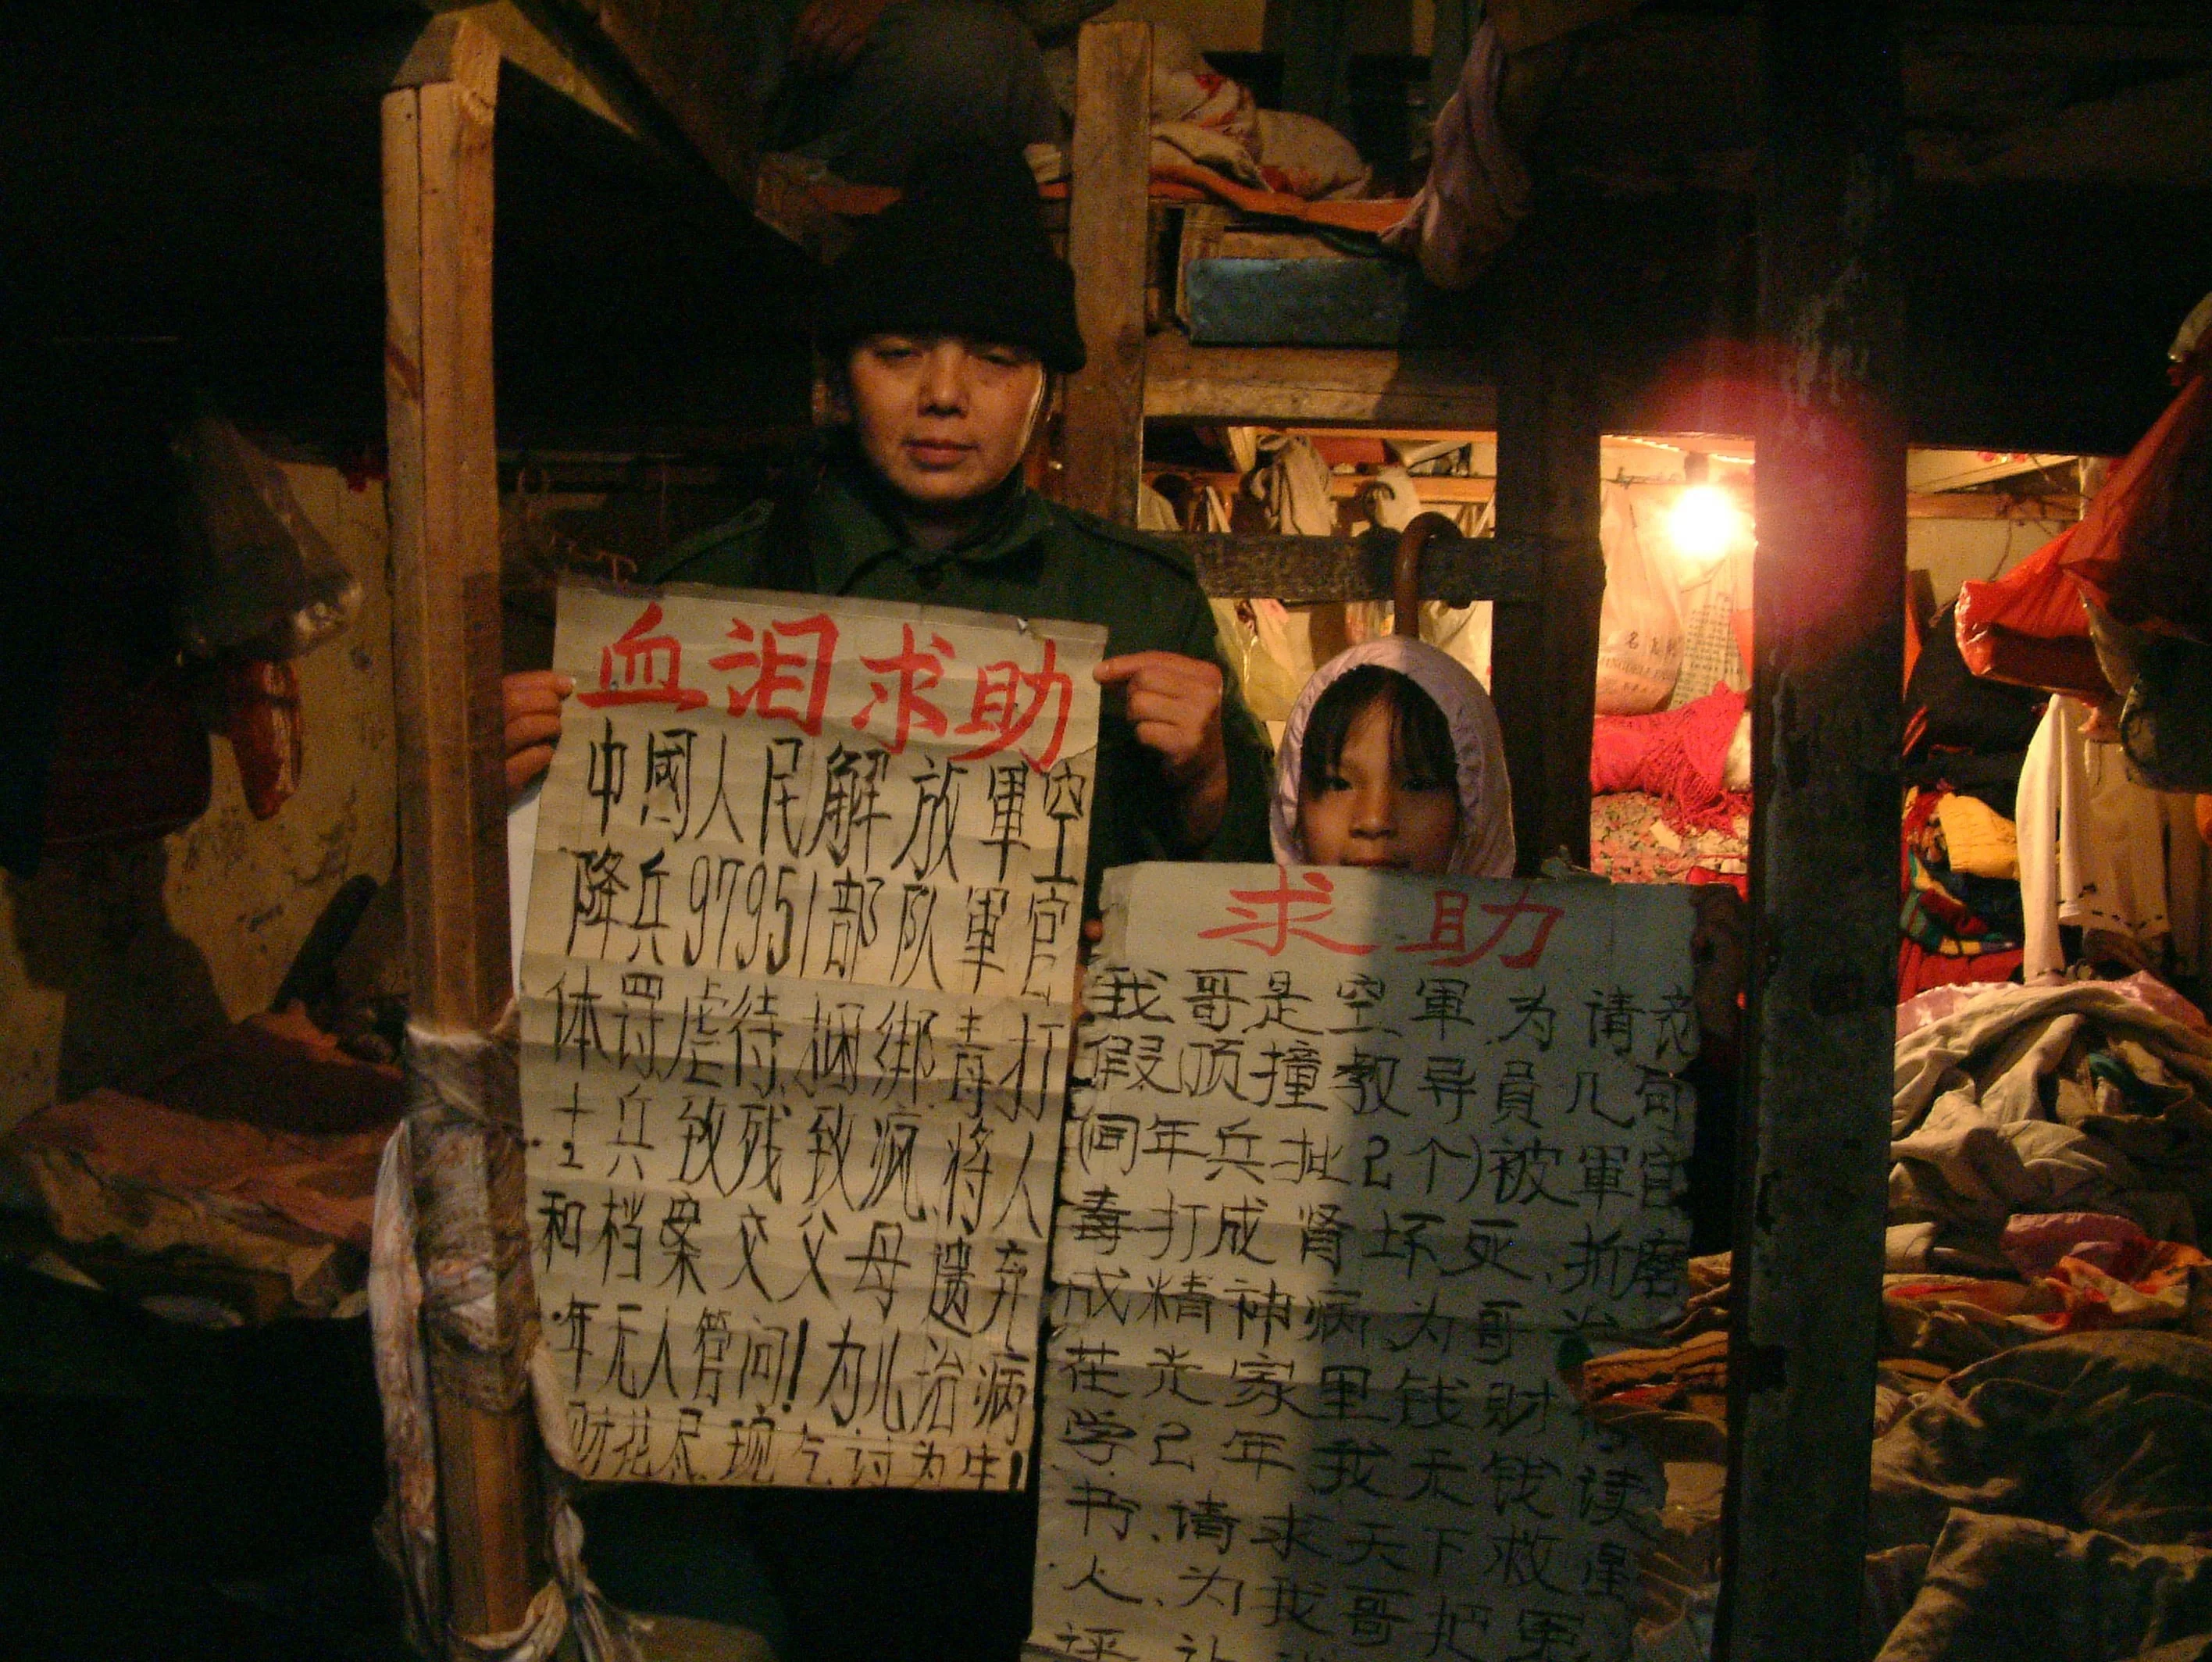 血泪求助
中國人民解放軍空
降兵97951部队軍官
体罚虐待.捆绑毒打
士兵致残致疯.将人
和档案交父母遗弃
年无人管问!为儿治病
财花尽.现乞讨为生!
求助
我哥是空軍.为请
假顶撞教导員几句
(同年兵批2个)被軍官
毒打成肾坏死.折磨
成精神病.为哥治
光家里钱财
学2年我无钱读
书.请求天下救星
人.为我哥把軍
评